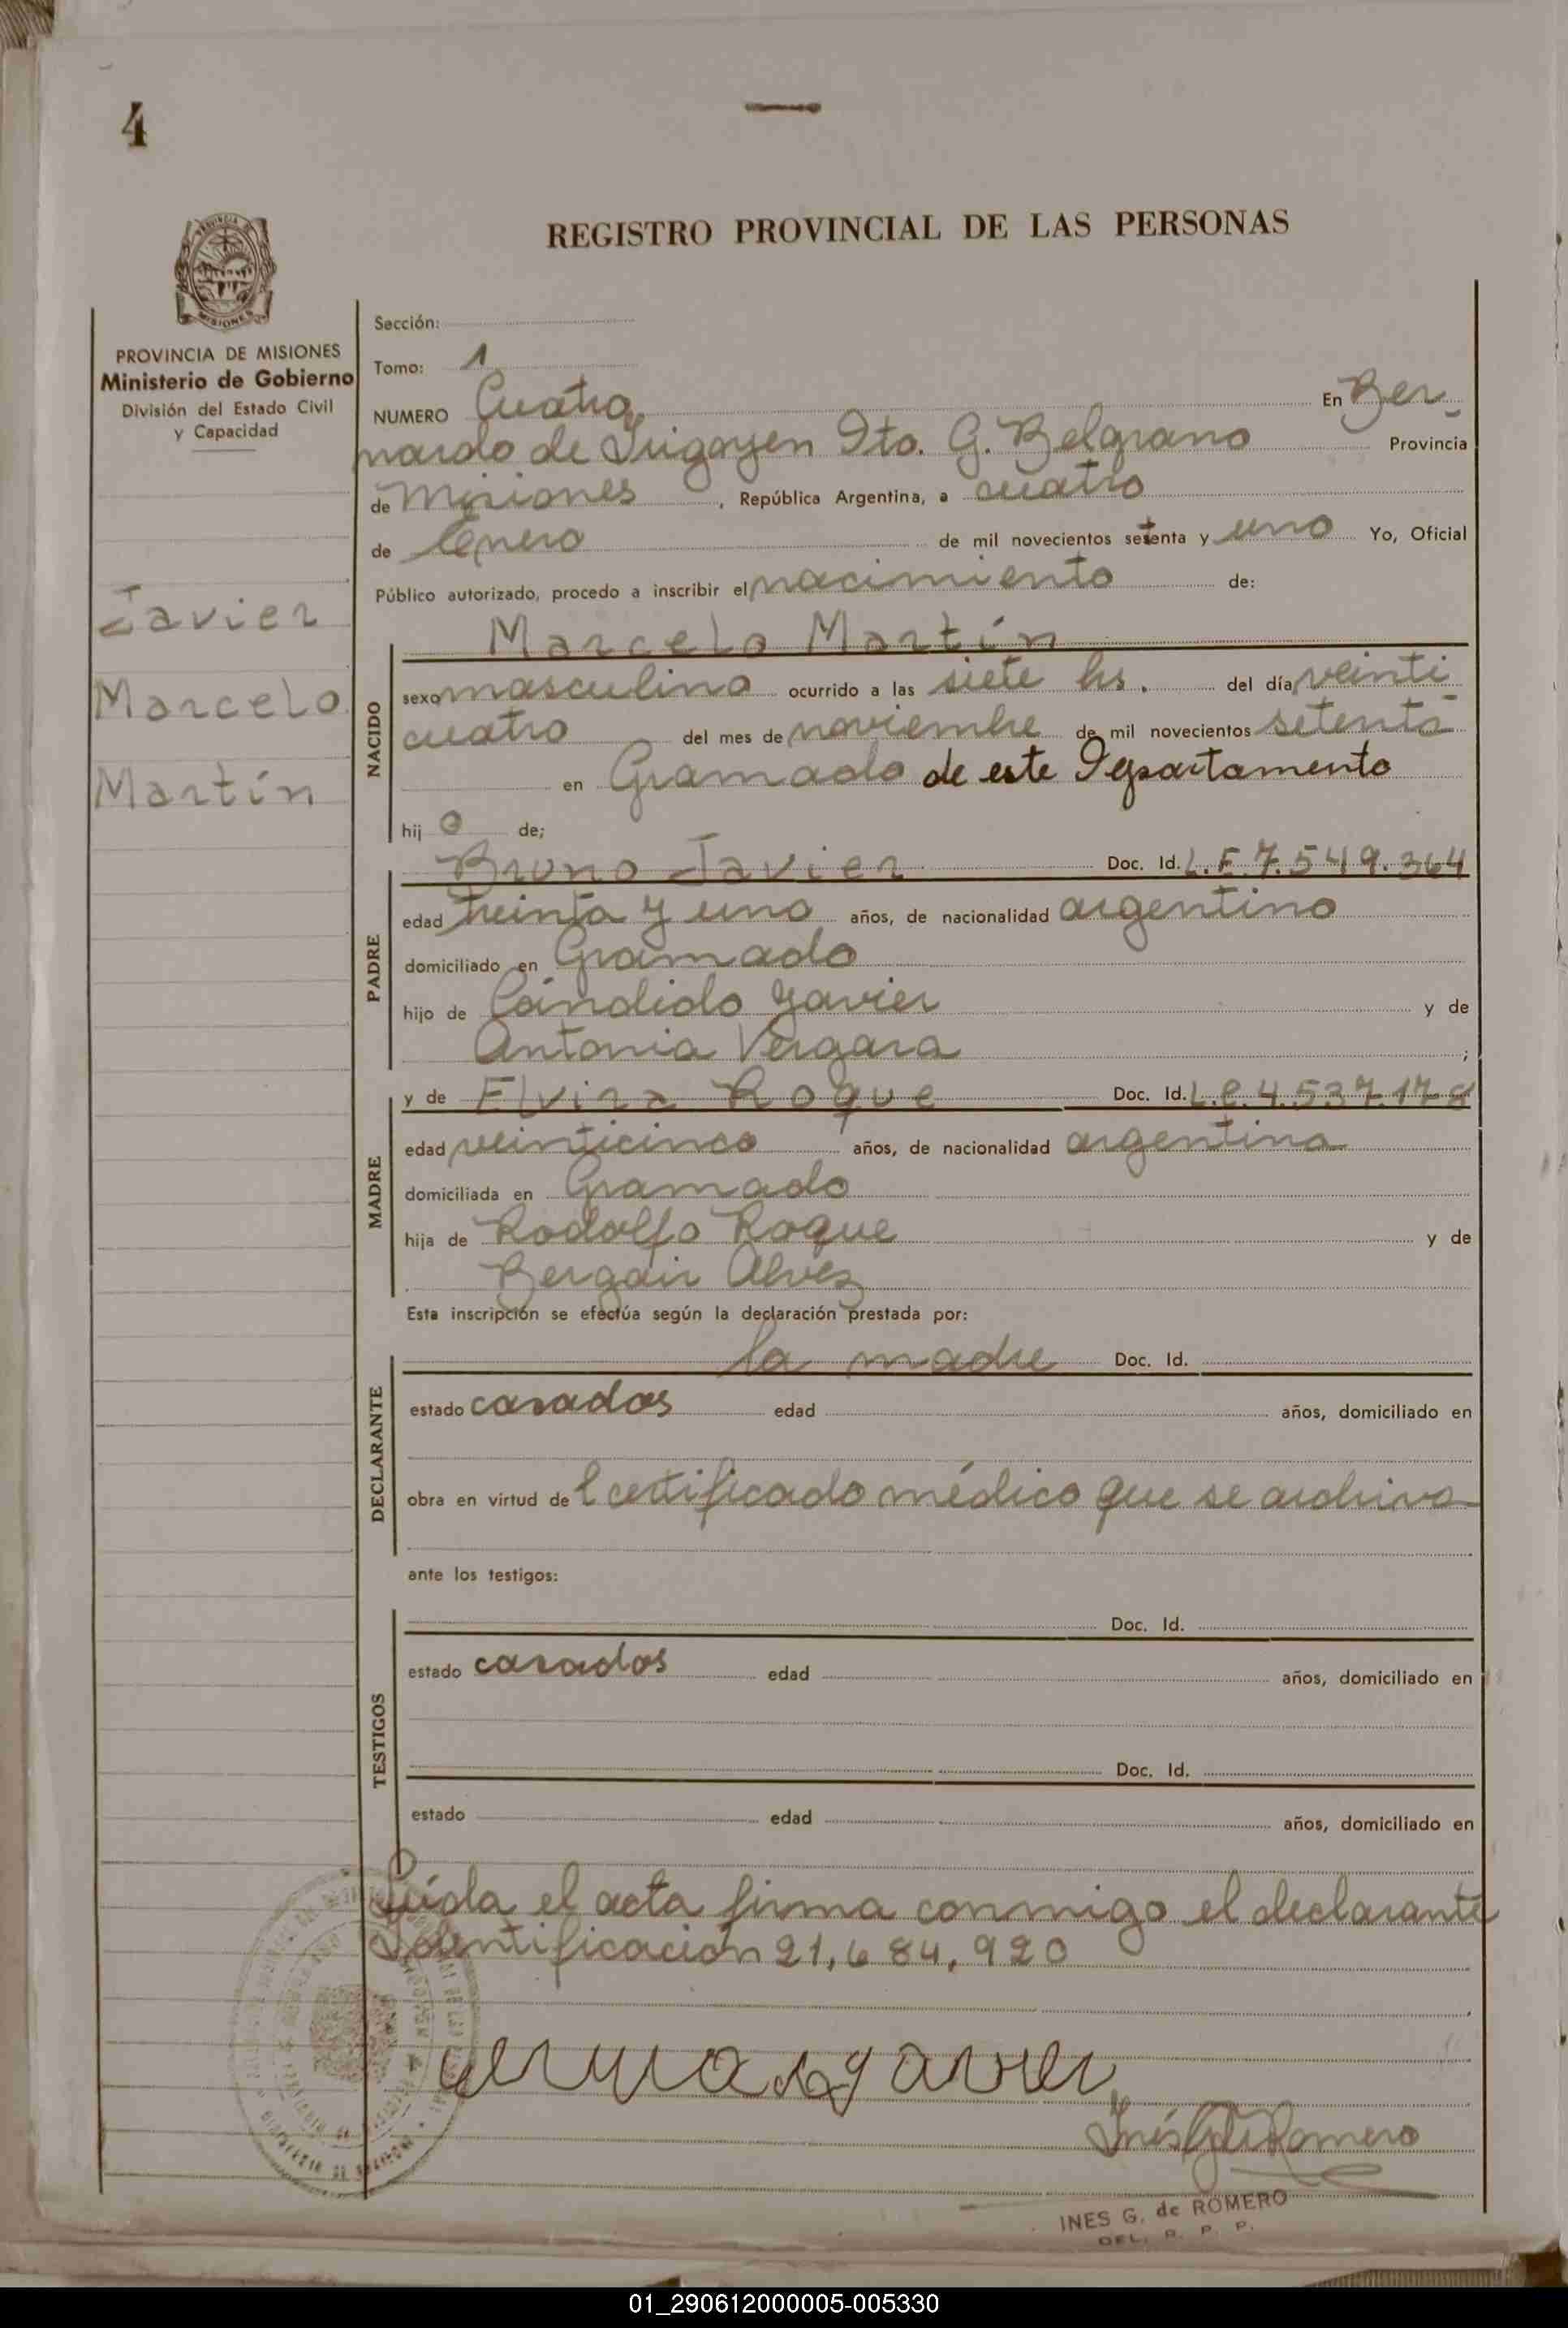 4
REGISTRO PROVINCIAL DE LAS PERSONAS
PROVINCIA
MISIONES
PROVINCIA DE MISIONES
Ministerio de Gobierno
División del Estado Civil
y Capacidad
Javier
Marcelo
Martín
Sección:
Tomo: 1
NUMERO Cuatro En Ber-
nardo de Irigoyen Dto. G. Belgrano Provincia
de Misiones, República Argentina, a cuatro
de Enero de mil novecientos setenta y uno Yo, Oficial
Público autorizado, procedo a inscribir el nacimiento de:
NACIDO
Marcelo Martín
sexo masculino ocurrido a las siete hs. del día veinti
cuatro del mes de noviembre de mil novecientos setenta
en Gramado de este Departamento
hijo de;
PADRE
Bruno Javier Doc. Id. L.E. 7.549.364
edad treinta y uno años, de nacionalidad argentino
domiciliado en Gramado
hijo de Cándido Javier y de
Antonia Vergara ;
MADRE
y de Elvira Roque Doc. Id. L.C. 4.537.178
edad veinticinco años, de nacionalidad argentina
domiciliada en Gramado
hija de Rodolfo Roque y de
Alvez
Esta inscripción se efectúa según la declaración prestada por:
DECLARANTE
la madre Doc. Id.
estado casados edad años, domiciliado en
obra en virtud del certificado médico que se archiva
ante los testigos:
TESTIGOS
Doc. Id.
estado casados edad años, domiciliado en
Doc. Id.
estado edad años, domiciliado en
Leída el acta firma conmigo el declarante
Identificación 21,684,920
Inés G. de Romero
INES G. de ROMERO
DEL. R. P. P.
01_290612000005-005330